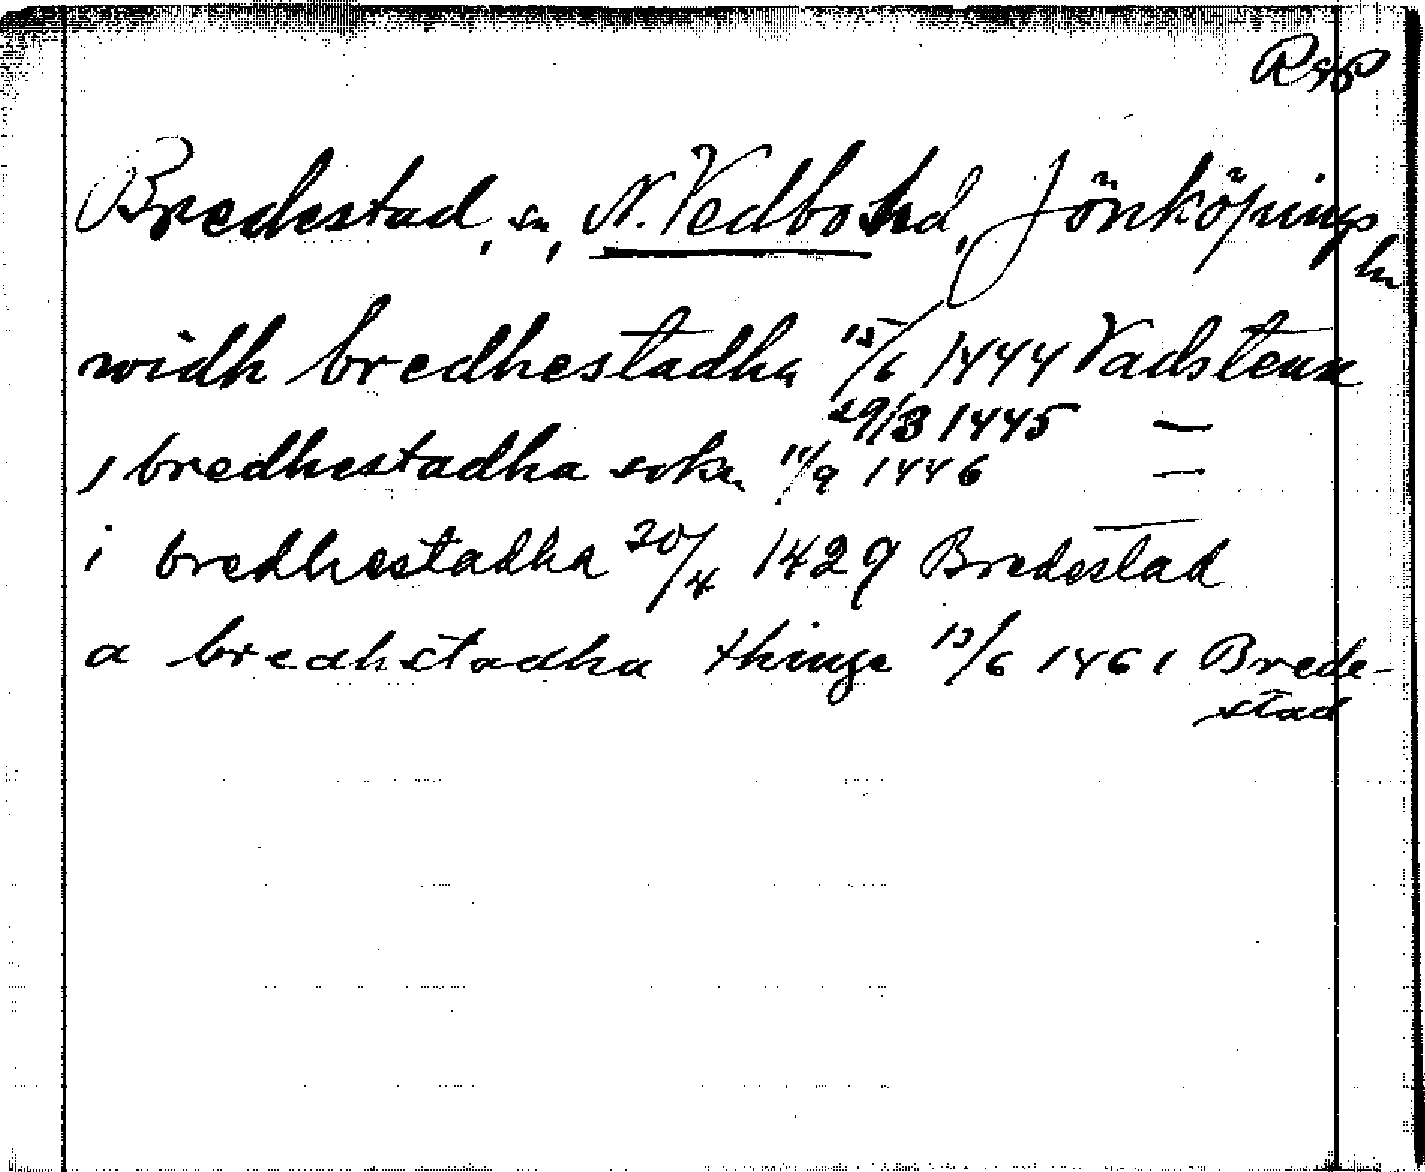 RAP
Bredestad, sn, N. Vedbo hd, Jönköpings
ln
widh bredhestadha 15/6 1444 Vadstena
29/3 1445 —
i bredhestadha sokn 14/9 1446 —
i bredhestadha 20/4 1429 Bredestad
a bredhstadha thinge 13/6 1461 Brede-
stad